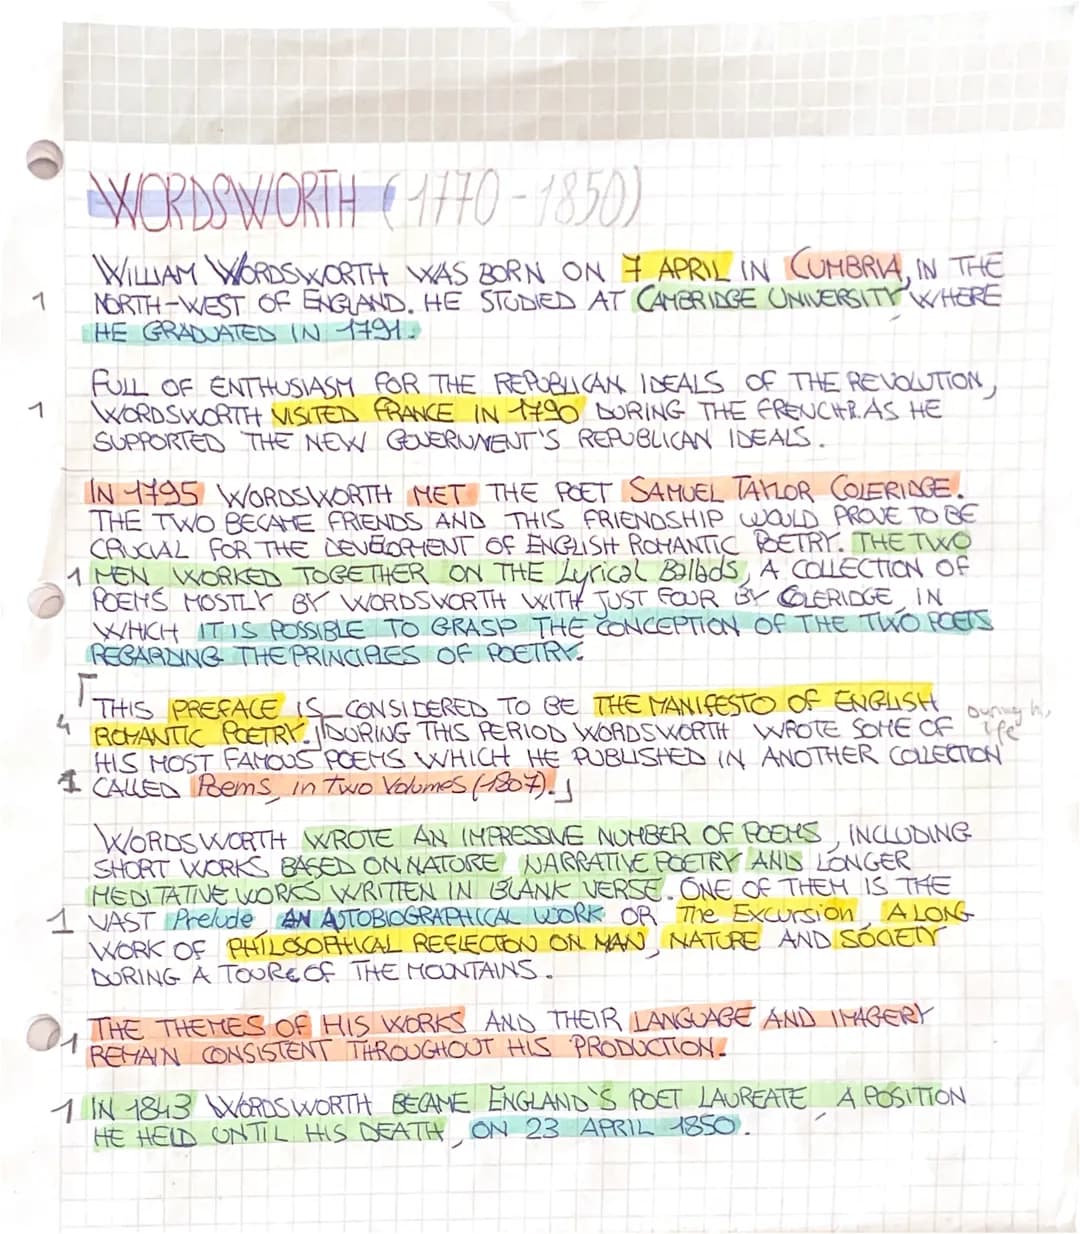 WORDSWORTH (1770-1850)
WILLIAM WORDSWORTH WAS BORN ON 7 APRIL IN CUMBRIA, IN THE
1 NORTH-WEST OF ENGLAND. HE STUDIED AT CAMBRIDGE UNIVERSITY, WHERE
HE GRADUATED IN 1791.
FULL OF ENTHUSIASM FOR THE REPUBLICAN IDEALS OF THE REVOLUTION,
1 WORDSWORTH VISITED FRANCE IN 1790 DURING THE FRENCH R. AS HE
SUPPORTED THE NEW GOVERNMENT'S REPUBLICAN IDEALS.
IN 1795 WORDSWORTH MET THE POET SAMUEL TAYLOR COLERIDGE.
THE TWO BECAME FRIENDS AND THIS FRIENDSHIP WOULD PROVE TO BE
CRUCIAL FOR THE DEVELOPMENT OF ENGLISH ROMANTIC POETRY. THE TWO
1 MEN WORKED TOGETHER ON THE Lyrical Ballads, A COLLECTION OF
POEMS MOSTLY BY WORDSWORTH WITH JUST FOUR BY COLERIDGE, IN
WHICH IT IS POSSIBLE TO GRASP THE CONCEPTION OF THE TWO POETS
REGARDING THE PRINCIPLES OF POETRY.
THIS PREFACE IS CONSIDERED TO BE THE MANIFESTO OF ENGLISH
4 ROMANTIC POETRY. DURING THIS PERIOD WORDSWORTH WROTE SOME OF During his life
HIS MOST FAMOUS POEMS WHICH HE PUBLISHED IN ANOTHER COLLECTION
1 CALLED Poems, in Two Volumes (1807).
WORDSWORTH WROTE AN IMPRESSIVE NUMBER OF POEMS, INCLUDING
SHORT WORKS BASED ON NATURE, NARRATIVE POETRY AND LONGER
MEDITATIVE WORKS WRITTEN IN BLANK VERSE. ONE OF THEM IS THE
1 VAST Prelude AN AUTOBIOGRAPHICAL WORK OR The Excursion, A LONG
WORK OF PHILOSOPHICAL REFLECTION ON MAN, NATURE AND SOCIETY
DURING A TOUR OF THE MOUNTAINS.
THE THEMES OF HIS WORKS AND THEIR LANGUAGE AND IMAGERY
1 REMAIN CONSISTENT THROUGHOUT HIS PRODUCTION.
1 IN 1843 WORDSWORTH BECAME ENGLAND'S POET LAUREATE, A POSITION
HE HELD UNTIL HIS DEATH, ON 23 APRIL 1850.